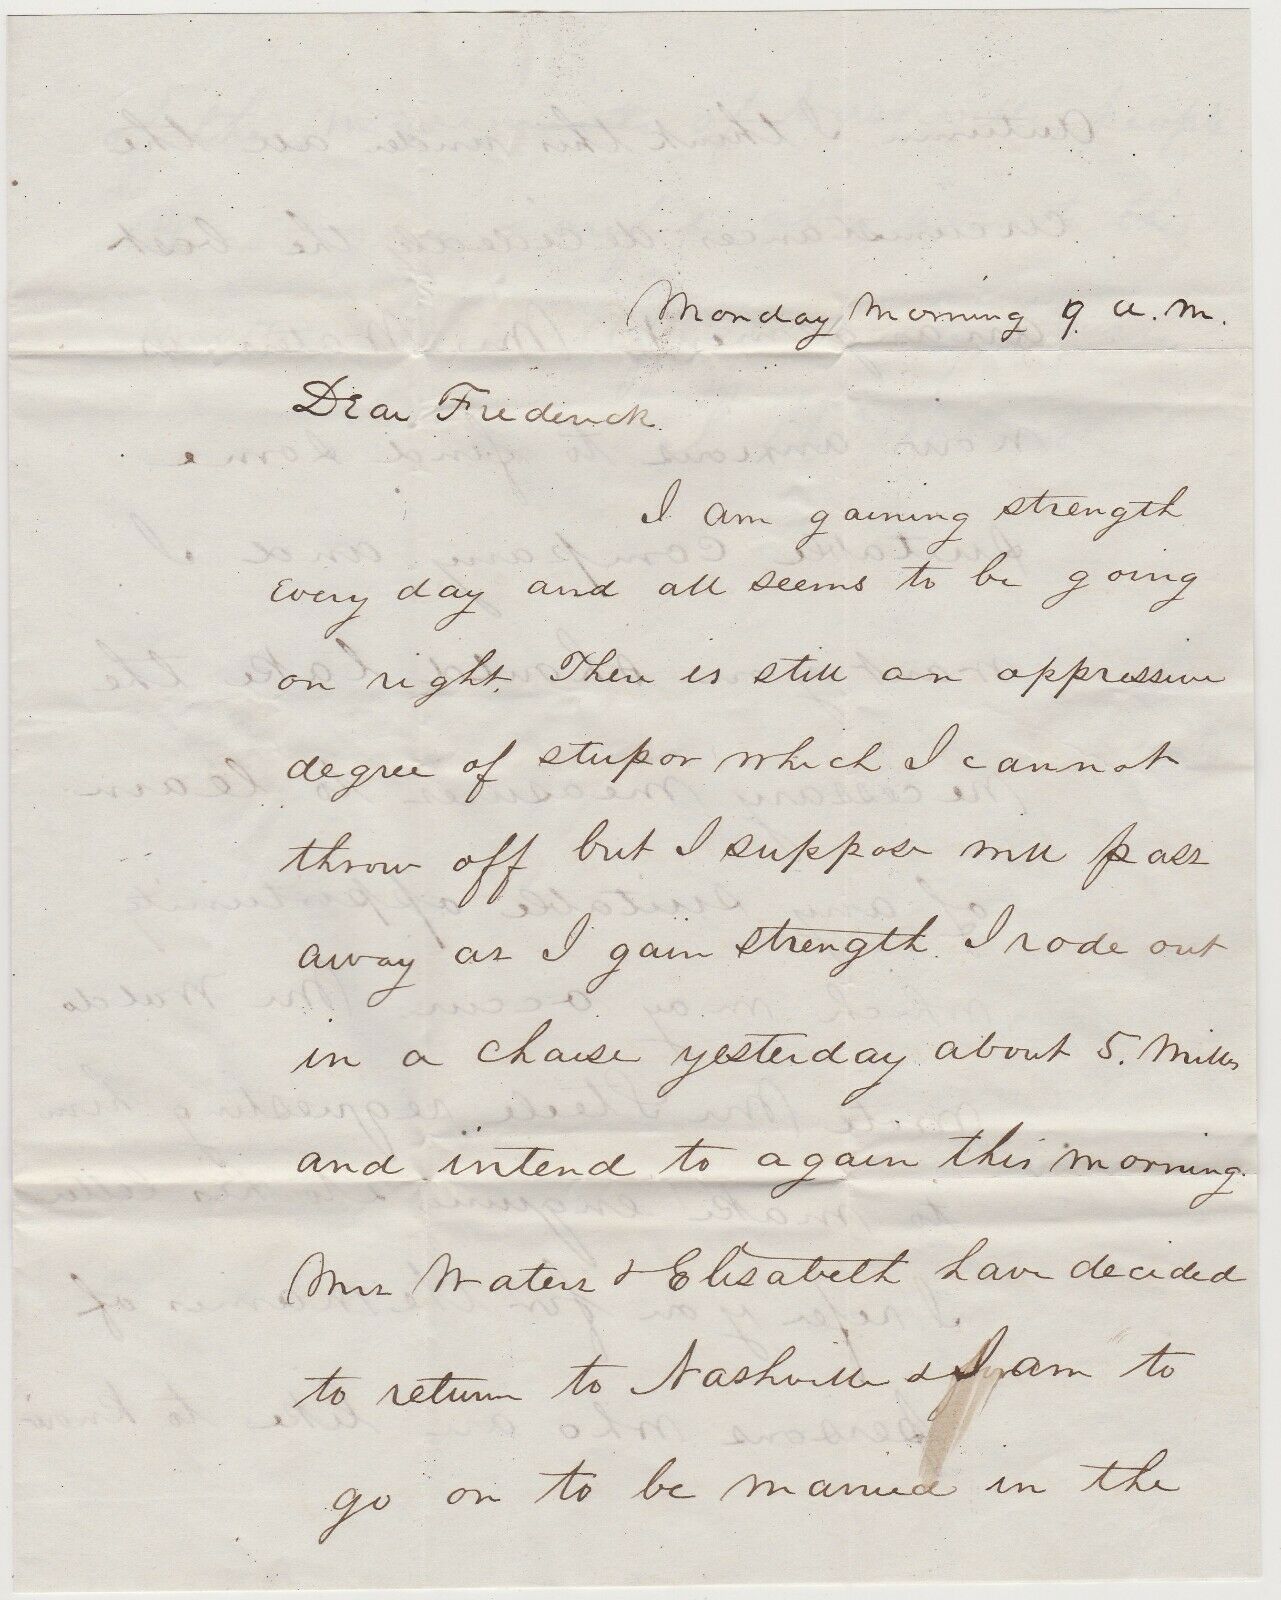 Monday Morning 9 a.m.
Dear Frederick.
I am gaining strength
Every day and all seems to be going
on right. There is still an oppressive
degree of stupor which I cannot
throw off but I suppose will pass
away as I gain strength. I rode out
in a chaise yesterday about 5. Miles
and intend to again this morning.
Mrs Waters & Elisabeth have decided
to return to Nashville & I am to
go on to be married in the